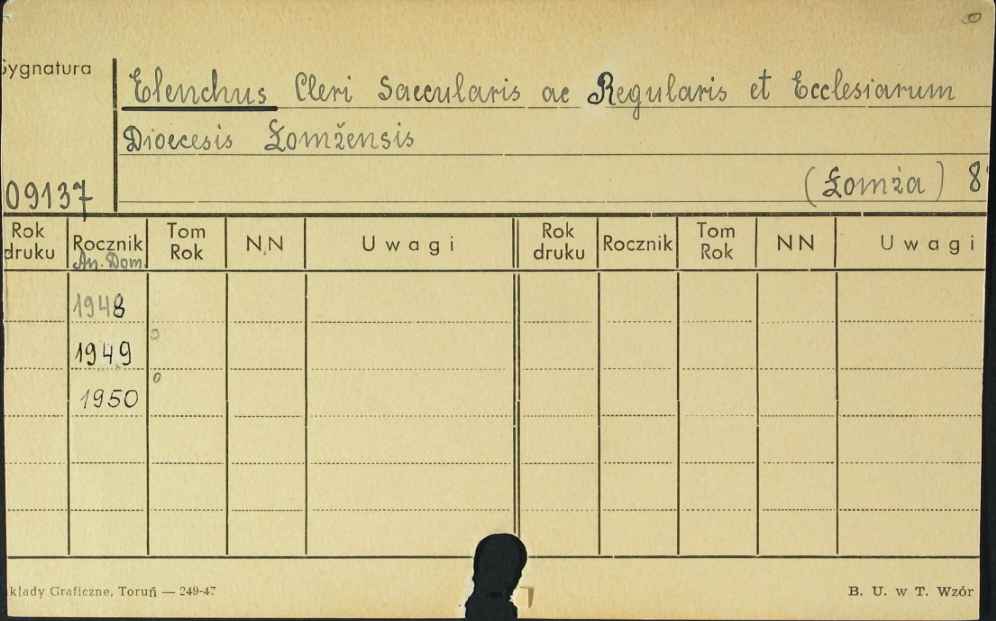 Sygnatura
Elenchus Cleri Saecularis ac Regularis et Ecclesiarum
Dioecesis Łomżensis
09137
(Łomża) 8°
Rok druku Rocznik Tom Rok N.N Uwagi Rok druku Rocznik Tom Rok NN Uwagi
An. Dom.
1948
1949
1950
kłady Graficzne, Toruń — 249-47
B. U. w T. Wzór